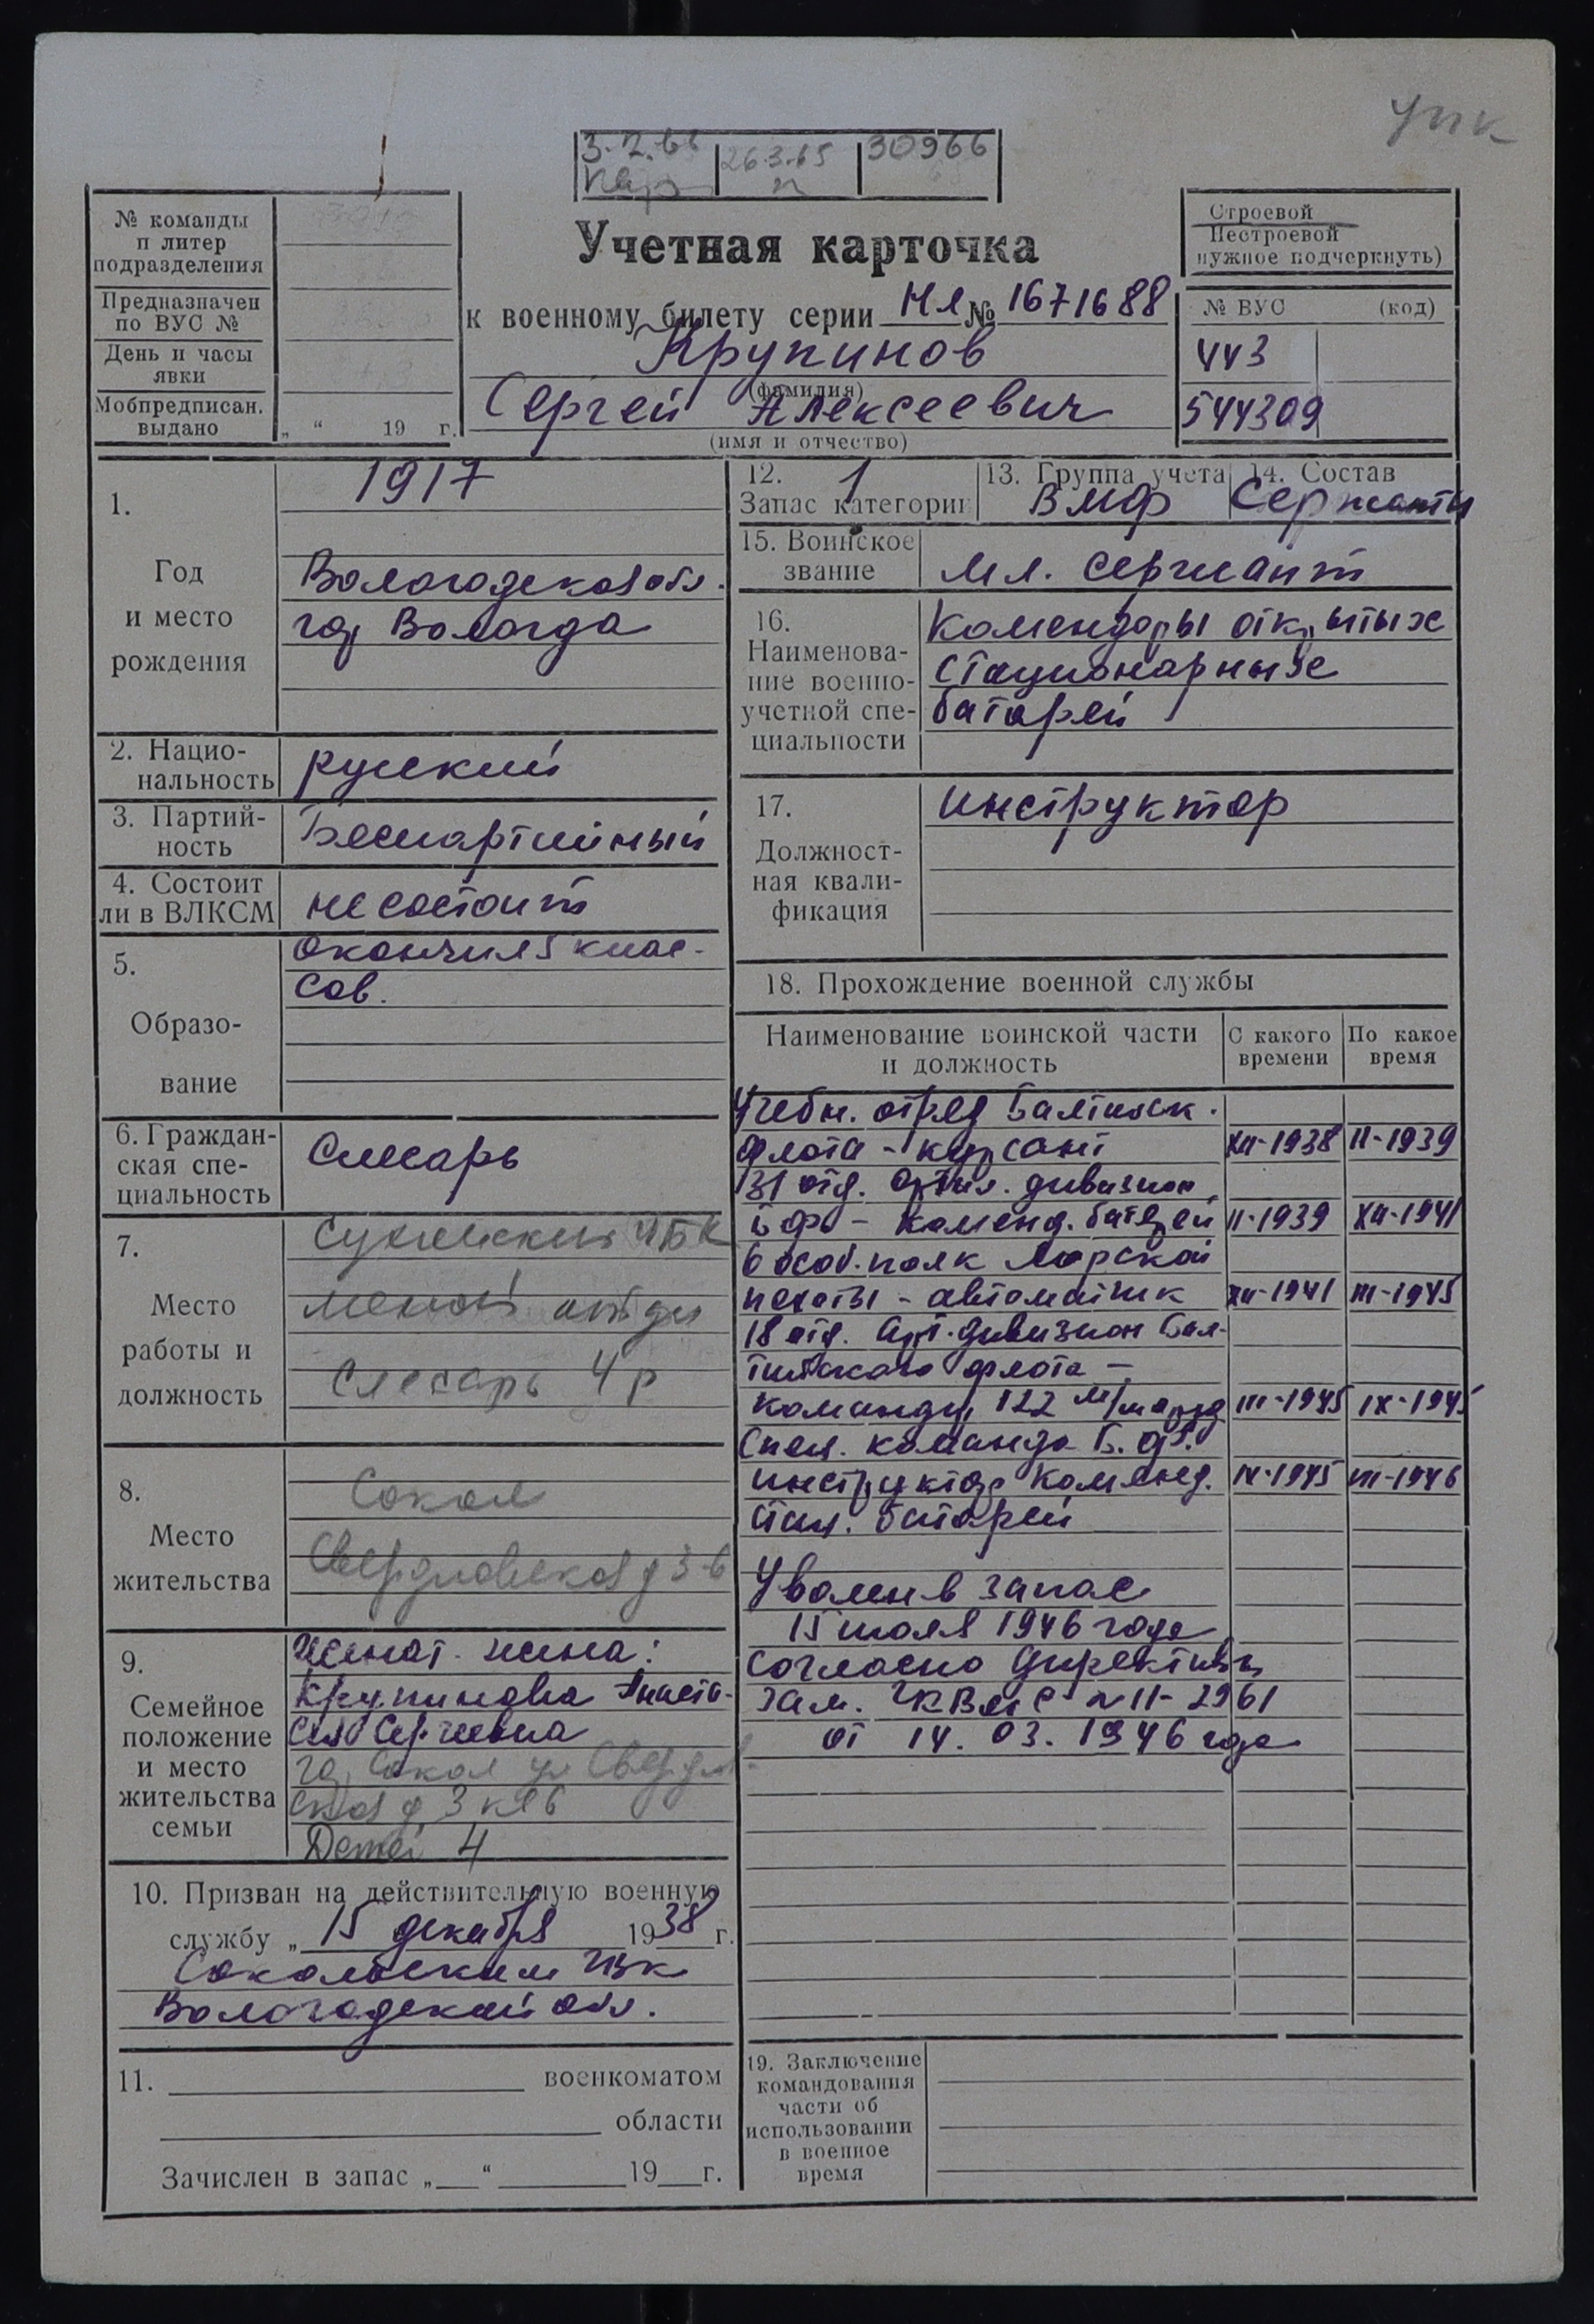 упк
3.2.66
26.3.65
30966
№ команды
п литер
подразделения
Предназначен
по ВУС №
День и часы
явки
Мобпредписан.
выдано
„ “ 19 г.
Учетная карточка
к военному билету серии НЛ № 1671688
Крупинов
(фамилия)
Сергей Алексеевич
(имя и отчество)
Строевой
Нестроевой
нужное подчеркнуть)
№ ВУС (код)
443
544309
1.
Год
и место
рождения
1917
Вологодская обл.
гор Вологда
2. Нацио-
нальность
русский
3. Партий-
ность
Беспартийный
4. Состоит
ли в ВЛКСМ
не состоит
5.
Образо-
вание
Окончил 5 клас-
сов.
6. Граждан-
ская спе-
циальность
Слесарь
7.
Место
работы и
должность
слесарь 4 р
8.
Место
жительства
Сокол
Свердловская д 3-6
9.
Семейное
положение
и место
жительства
семьи
Женат. жена:
Крупинова Анаста-
сия Сергеевна
гор Сокол ул Свердлов-
ская д 3 кв 6
Детей 4
10. Призван на действительную военную
службу „ 15 декабря 1938 г.
Сокольским РВК
Вологодской обл.
11. военкоматом
области
Зачислен в запас „ “ 19 г.
12. 1
Запас категории
13. Группа учета
ВМФ
14. Состав
Сержанты
15. Воинское
звание
Мл. сержант
16.
Наименова-
ние военно-
учетной спе-
циальности
Комендоры открытых
стационарных
батарей
17.
Должност-
ная квали-
фикация
Инструктор
18. Прохождение военной службы
Наименование воинской части
и должность
С какого
времени
По какое
время
Учебн. отряд Балтийск.
флота - курсант XII-1938 II-1939
131 отд. Артил. дивизион
БФ - коменд. батарей II-1939 XII-1941
6 особ. полк Морской
пехоты - автоматчик XII-1941 III-1945
18 отд. Арт. дивизион Бал-
тийского флота -
командир 122 м/м III-1945 IX-1945
команда Б. Ф.
инструктор коменд. IX-1945 VII-1946
стац. батарей
Уволен в запас
15 июля 1946 года
Согласно Директивы
Зам. ГК ВМС № 11-2961
от 14. 03. 1946 года
19. Заключение
командования
части об
использовании
в военное
время